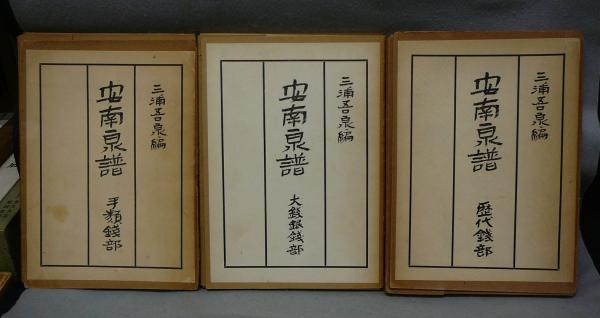 三浦吾泉編
安南泉譜
手類錢部
三浦吾泉編
安南泉譜
大錢銀錢部
三浦吾泉編
安南泉譜
歷代錢部